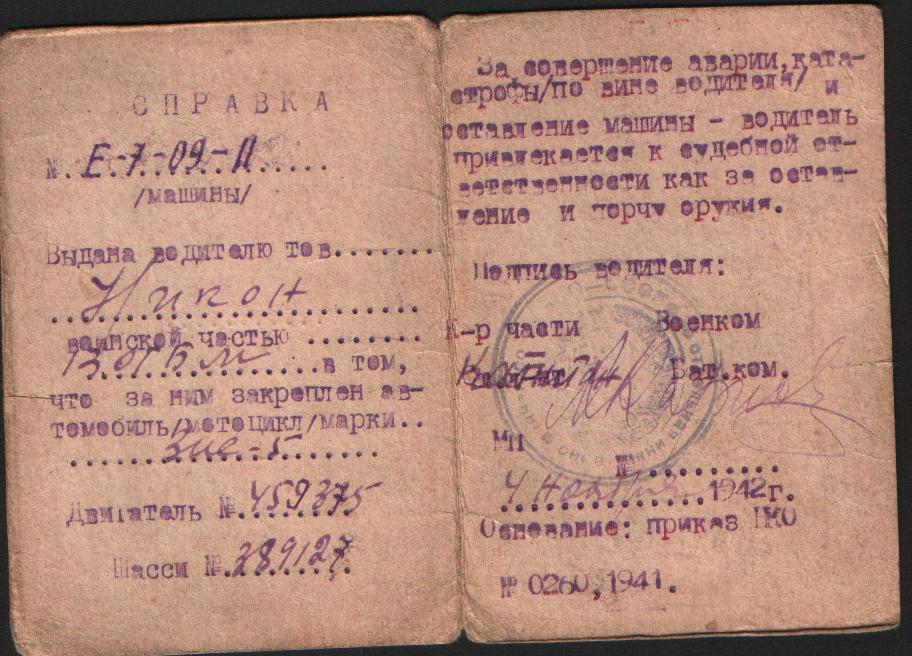 СПРАВКА
№ Е-7-09-Л
/машины/
Выдана водителю тов........
Никон
воинской частью ........
в том,
что за ним закреплен ав-
томобиль/мотоцикл/марки..
Зис-5
Двигатель №.459375
Шасси №.389127
За совершение аварии,ката-
строфы/по вине водителя/ и
оставление машины - водитель
привлекается к судебной от-
ветственности как за остав-
ление и порчу оружия.
Подпись водителя:
К-р части Военком
Бат.ком.
МП
№..........
4 ноября 1942г.
Основание: приказ НКО
№ 0260,1941.